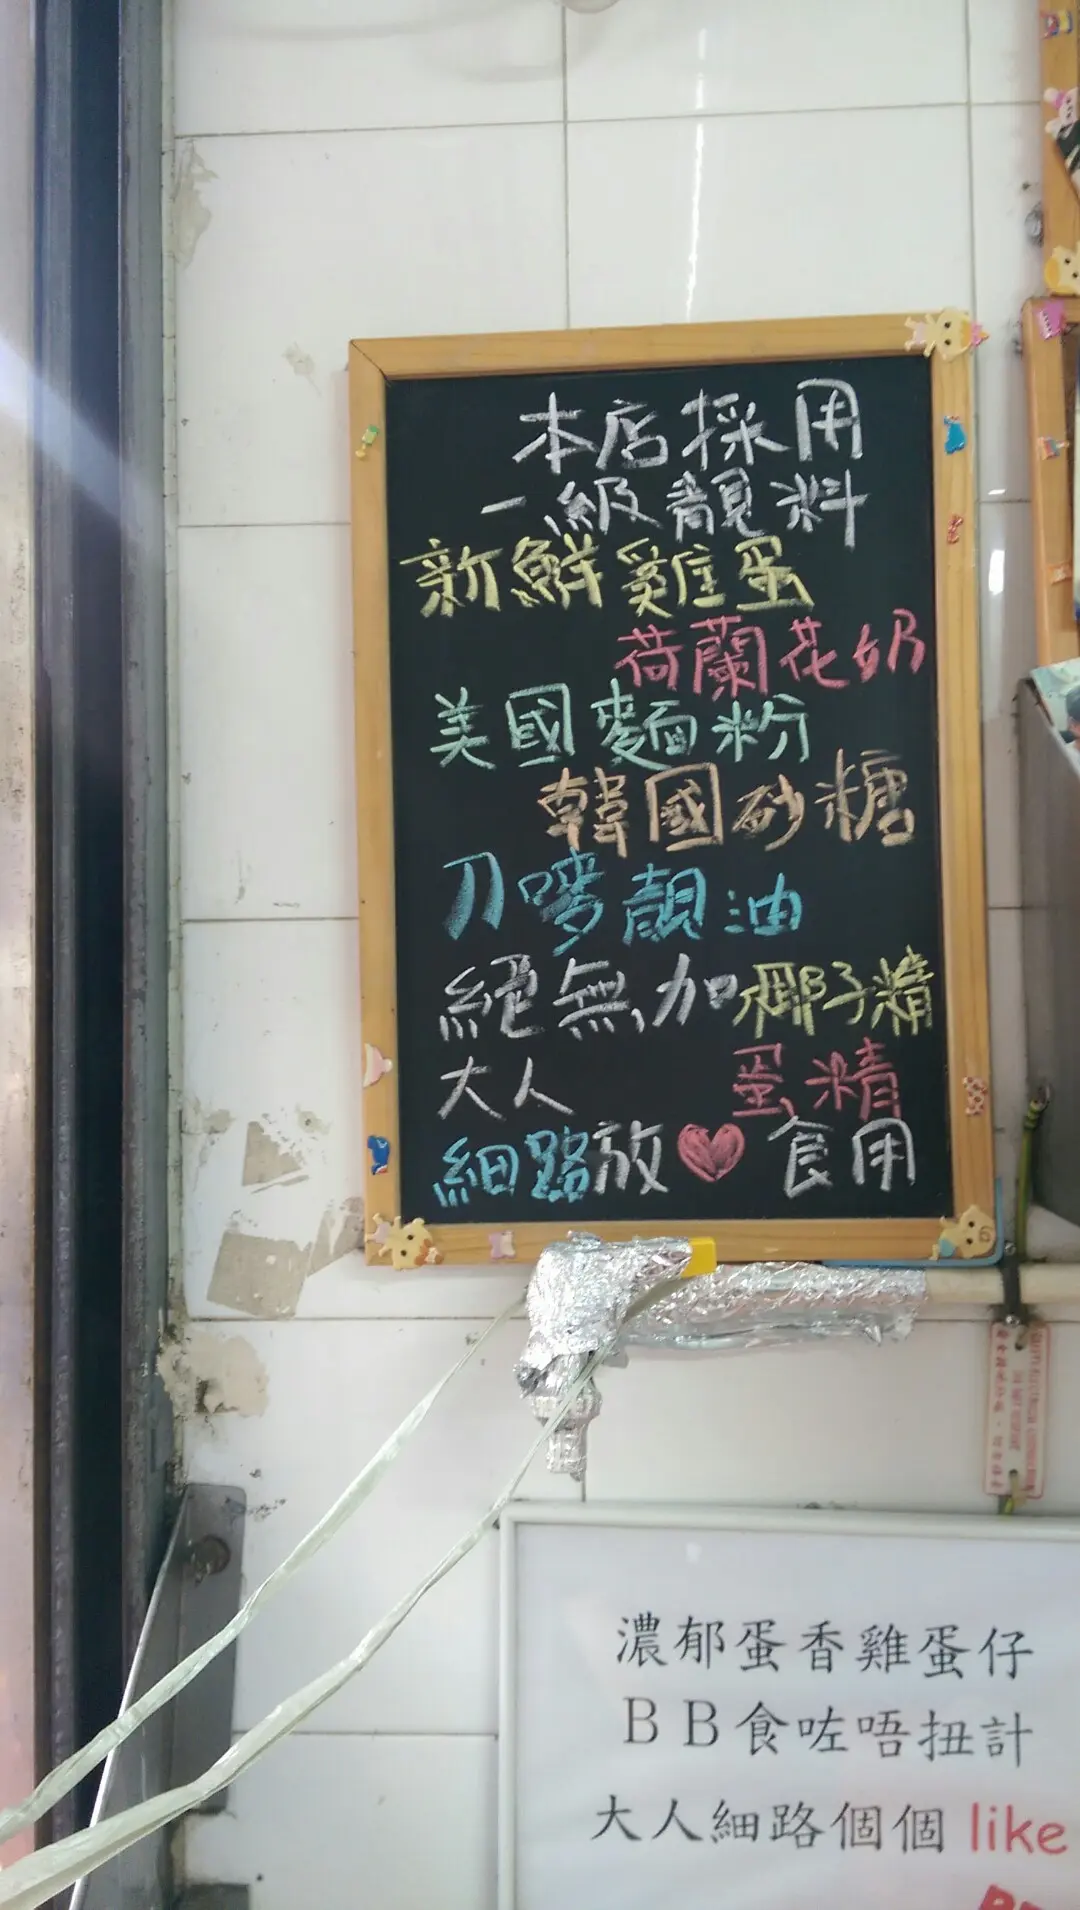 本店採用
一級靚料
新鮮雞蛋
荷蘭花奶
美國麵粉
韓國砂糖
刀嘜靚油
絕無加椰子精
大人 蛋精
細路放❤食用
濃郁蛋香雞蛋仔
BB食咗唔扭計
大人細路個個 like